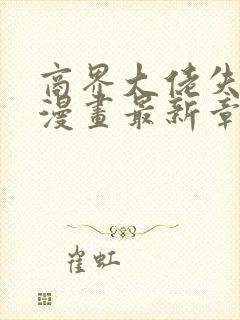 商界大佬失
漫畫最新章
崔虹